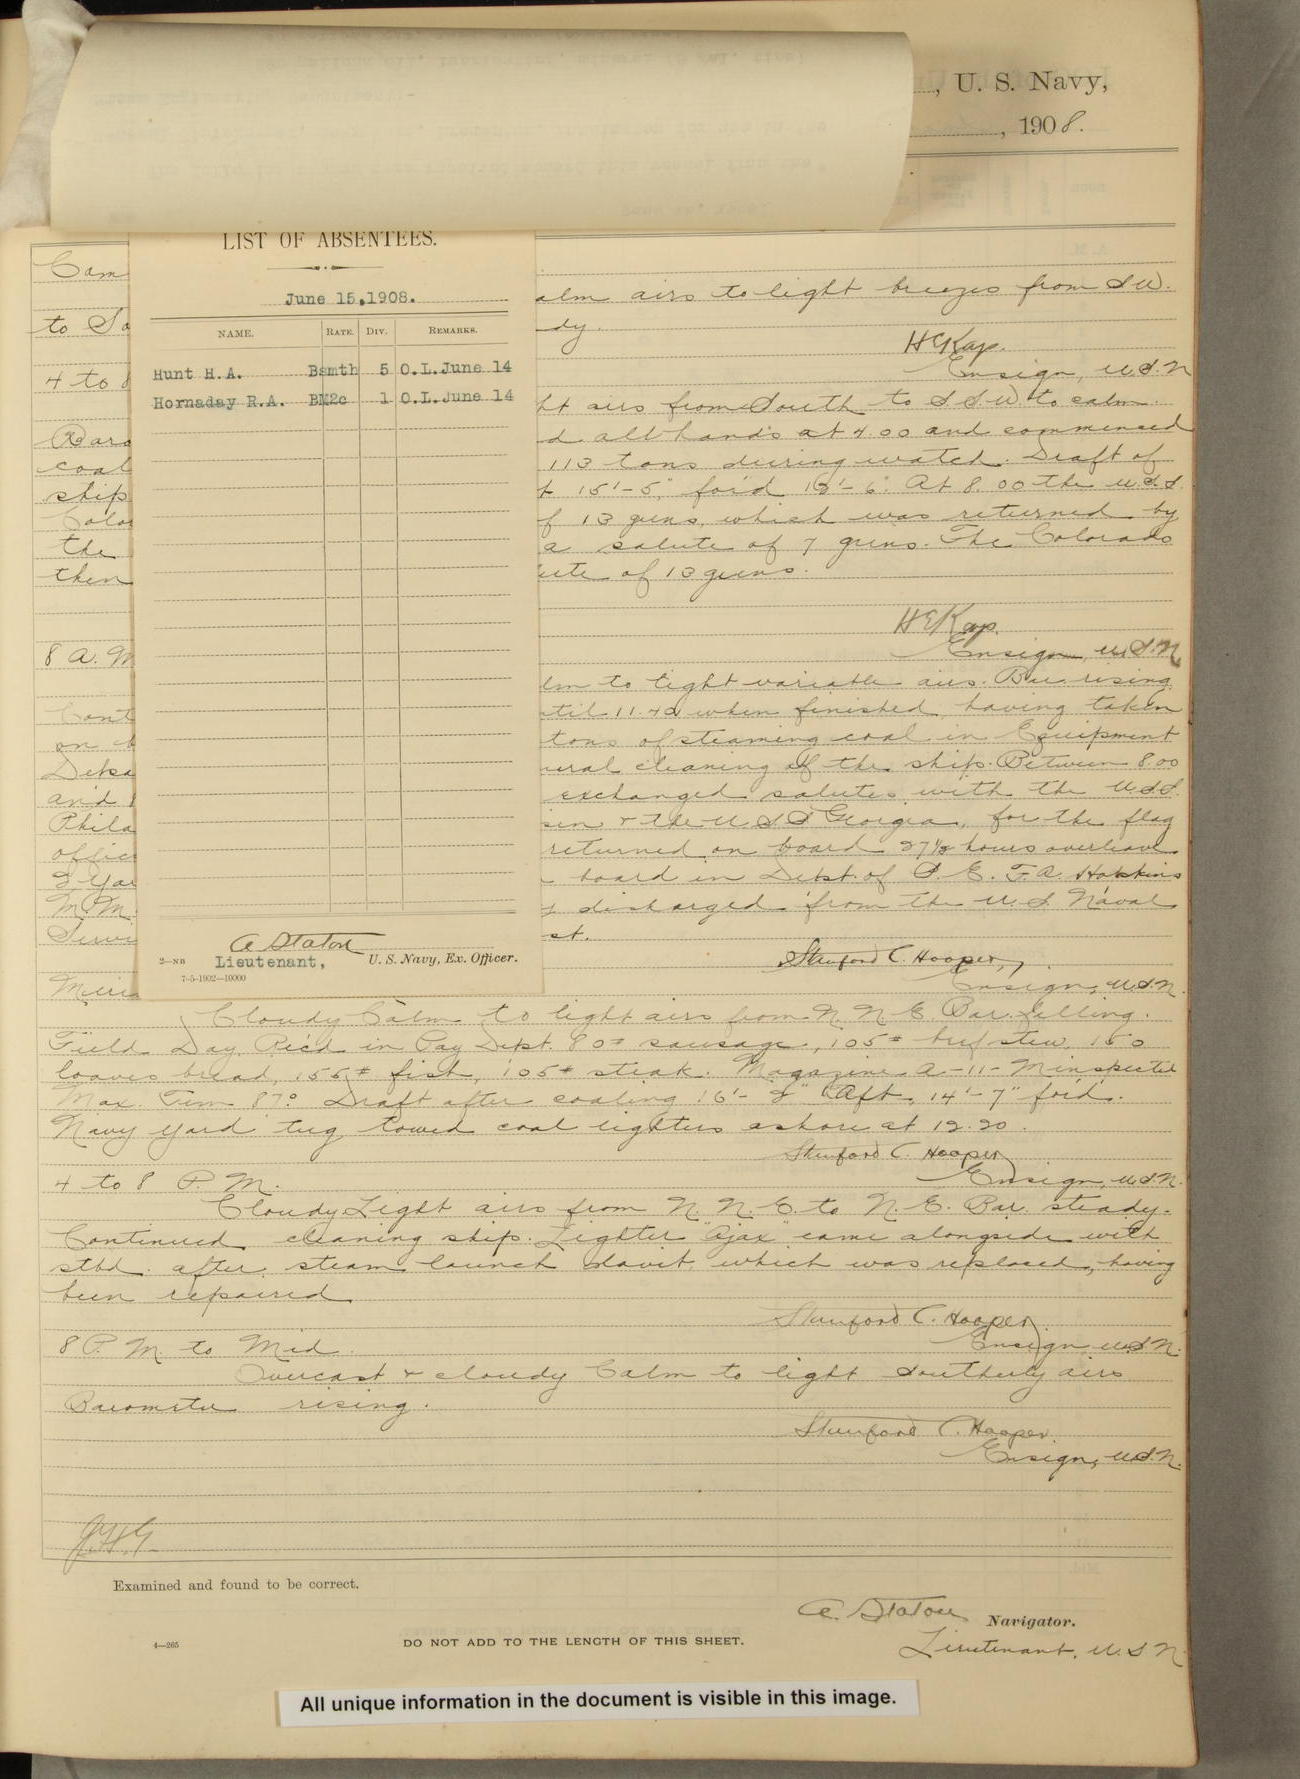 , U. S. Navy,
, 1908.
LIST OF ABSENTEES.
June 15,1908.
NAME. RATE. DIV. REMARKS.
Hunt H.A. Bsmth 5 O.L.June 14
Hornaday R.A. BM2c 1 O.L.June 14
A Staton
Lieutenant, U. S. Navy, Ex. Officer.
2—NB
7-5-1902—10000
Com
to So
4 to 8
Baro
coal
ship
Color
the
then
8 A. M
Cont
on b
Debsa
and
Phila
offic
2 Yar
M.M.
Servi
Meri
alm airs to light breezes from S W.
dy.
H E Kap.
Ensign, U.S.N
ht airs from South to S S W to calm.
d all hands at 4.00 and commenced
113 tons during watch. Draft of
t 15'-5", for'd 13'-6". At 8.00 the U.S.S.
f 13 guns, which was returned by
a salute of 7 guns. The Colorado
ute of 13 guns.
H E Kap.
Ensign, U.S.N
lm to light variable airs. Bar. rising
til 11.40 when finished, having taken
tons of steaming coal in Equipment
eral cleaning of the ship. Between 8.00
exchanged salutes with the U.S.S.
sin & the U S S Georgia, for the flag
returned on board 27½ hours overleave
board in Dept. of S. E. F.A. Hopkins
y discharged from the U.S Naval
st.
Stanford C. Hooper,
Ensign, U.S.N.
Cloudy Calm to light airs from N. N. E. Bar. falling.
Field Day. Rec'd in Pay Dept. 80# sausage, 105# beef stew, 150
loaves bread, 155# fish, 105# steak. Magazine A-11-M inspected
Max. Tem 87° Draft after coaling 16'-2" Aft. 14'-7" for'd.
Navy Yard tug towed coal lighters ashore at 12.20.
Stanford C. Hooper
Ensign, U.S.N.
4 to 8 P. M.
Cloudy Light airs from N. N. E. to N. E. Bar. steady.
Continued cleaning ship. Lighter "Ajax" came alongside with
stbd. after steam launch davit, which was replaced, having
been repaired
Stanford C. Hooper
Ensign U.S.N.
8 P. M. to Mid.
Overcast & cloudy Calm to light southerly airs
Barometer rising.
Stanford C. Hooper.
Ensign, U.S.N.
J.H.G.
Examined and found to be correct.
A. Staton Navigator.
Lieutenant, U. S N
4—265
DO NOT ADD TO THE LENGTH OF THIS SHEET.
All unique information in the document is visible in this image.